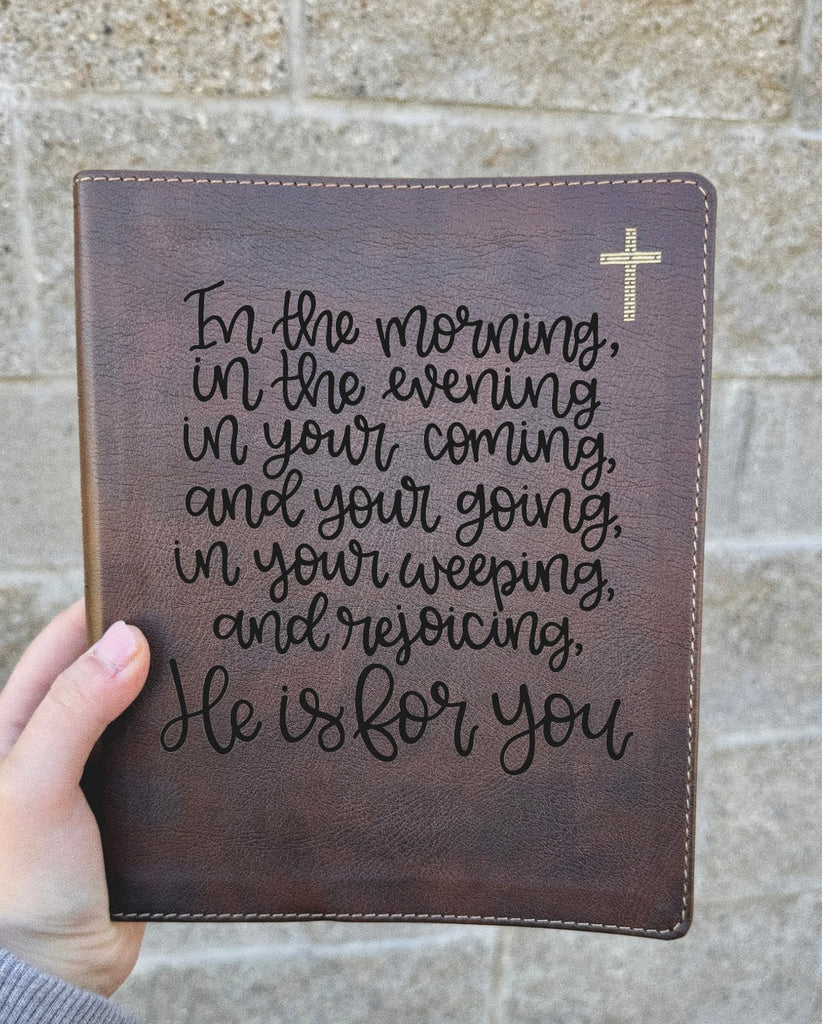 In the morning,
in the evening
in your coming,
and your going,
in your weeping,
and rejoicing,
He is for you